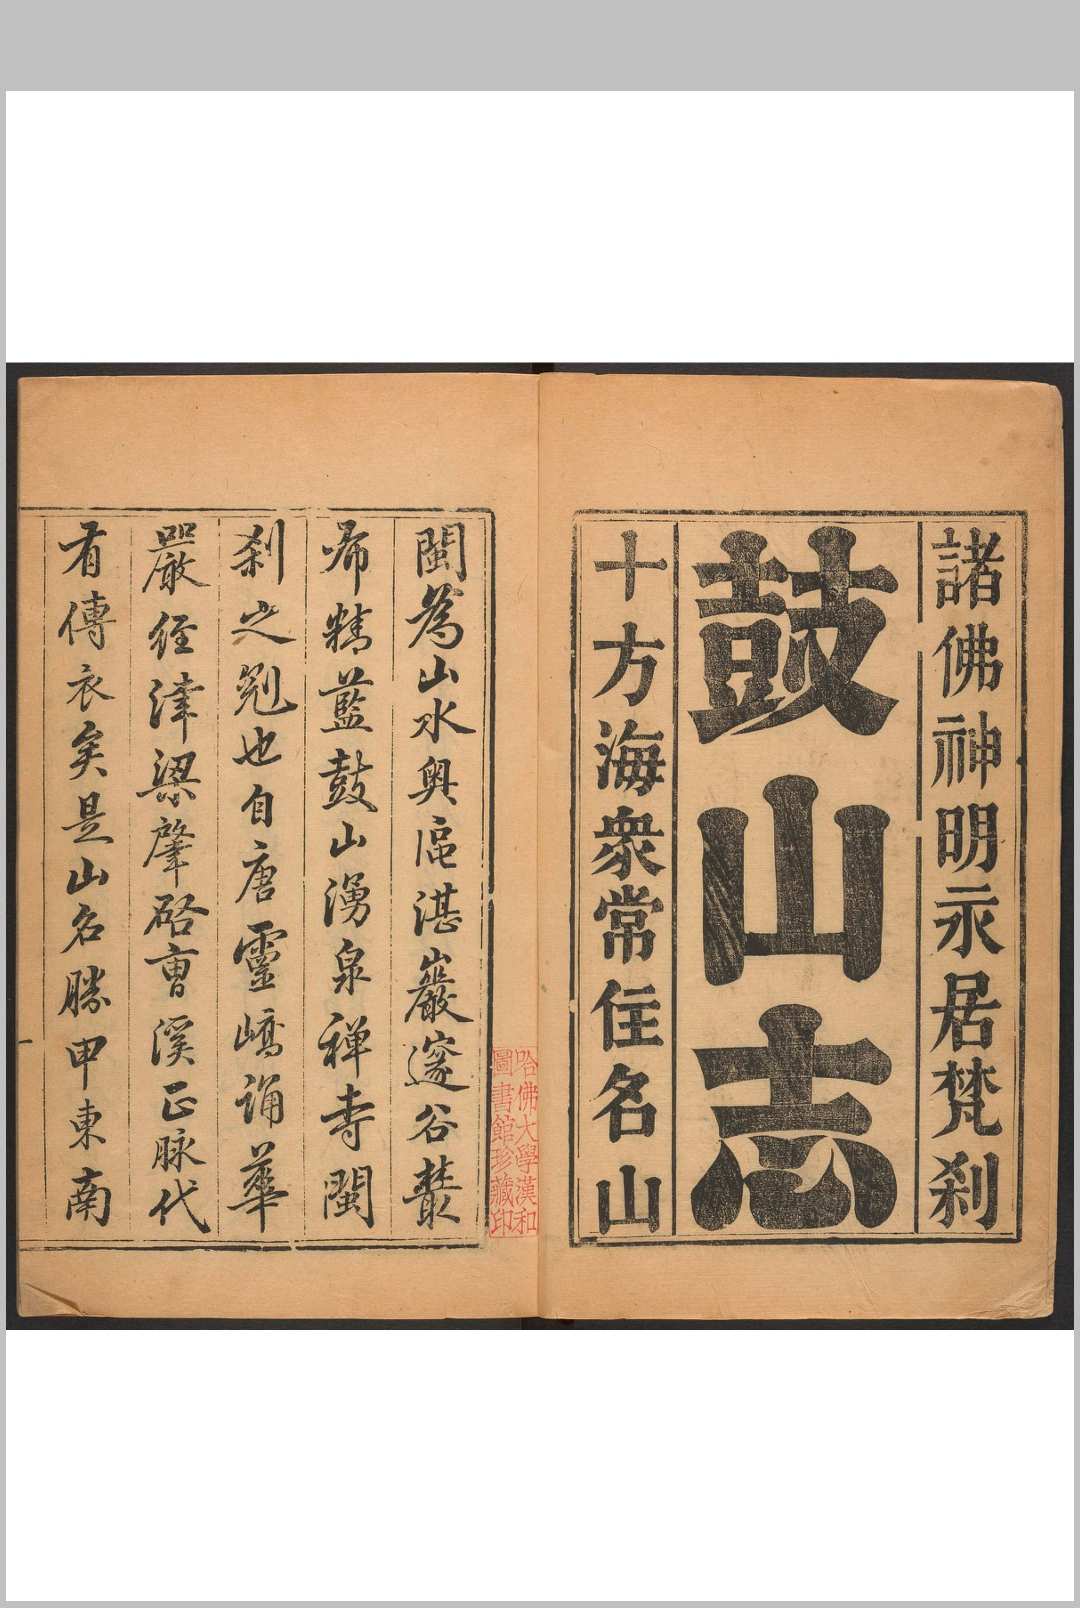 諸佛神明永居梵刹
鼓山志
十方海衆常住名山
閩為山水奥區湛巖邃谷叢
帝精藍鼓山湧泉禅寺閩
刹之冠也自唐靈嶠誦華
嚴経津梁肇啓曹溪正脉代
有傳衣矣是山名勝甲東南
哈佛大學漢和
圖書館珍藏印